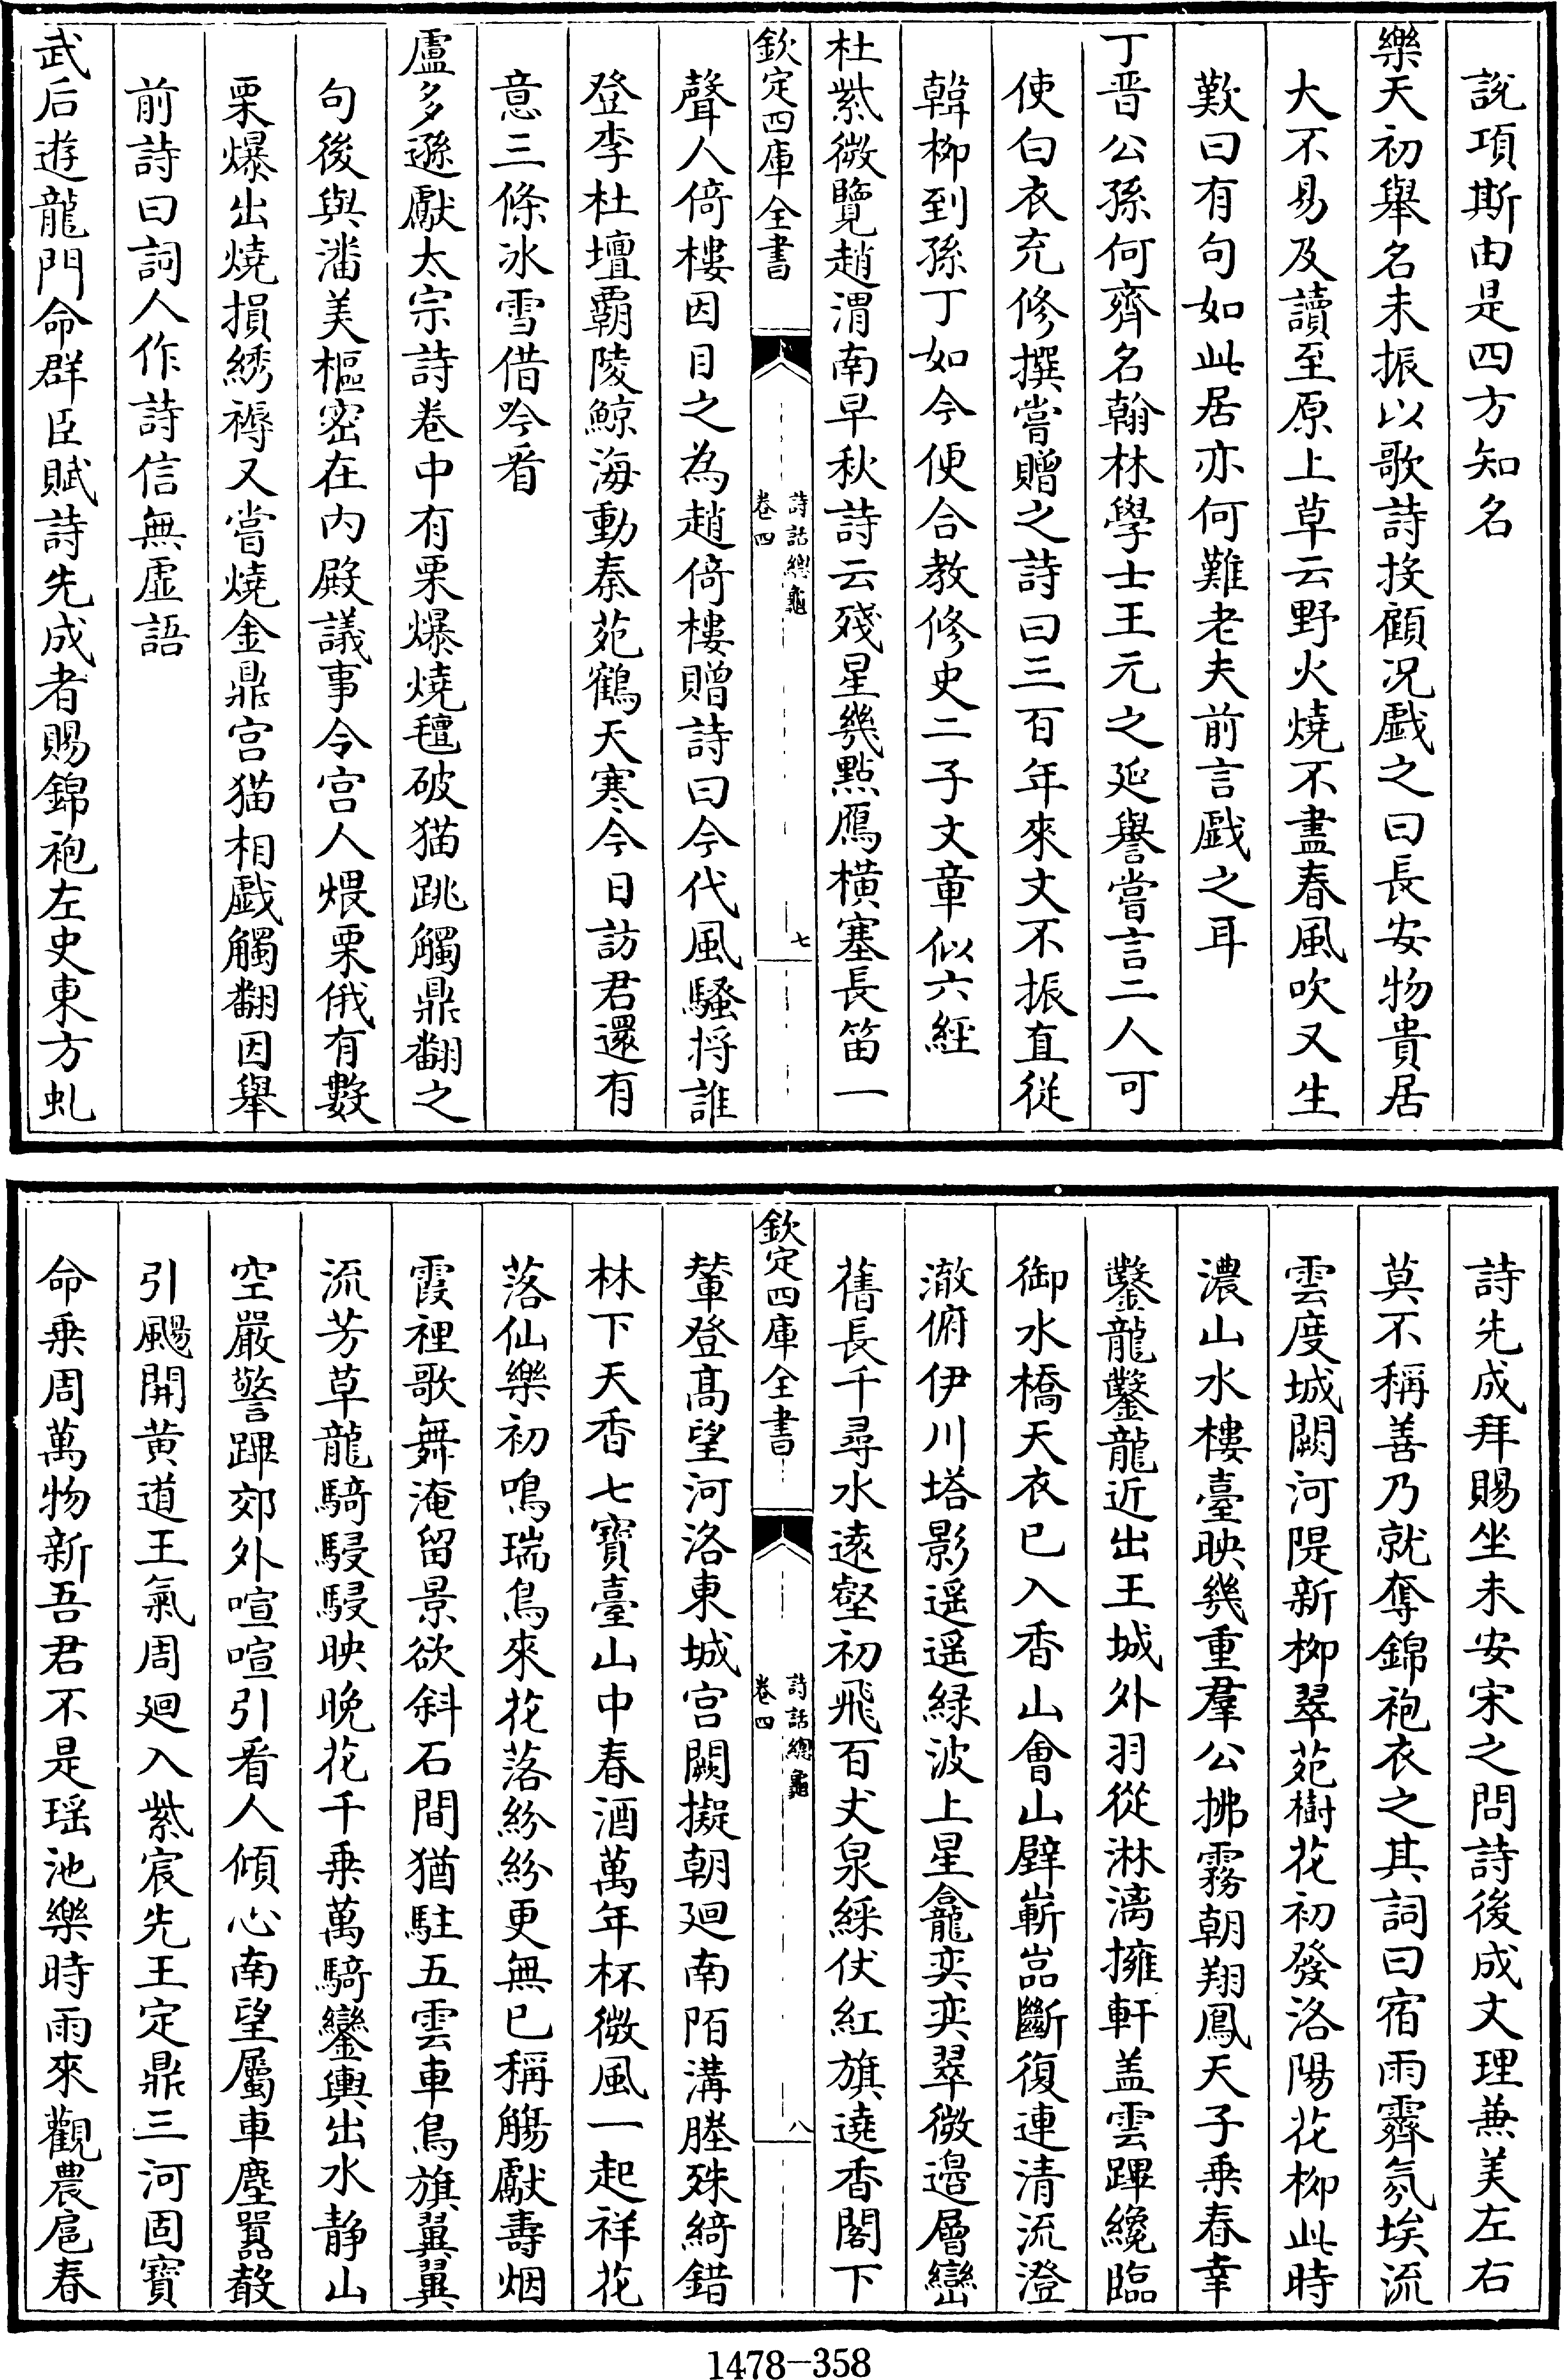 說項斯由是四方知名
樂天初舉名未振以歌詩投顧况戲之曰長安物貴居
大不易及讀至原上草云野火燒不盡春風吹又生
歎曰有句如此居亦何難老夫前言戲之耳
丁晋公孫何齊名翰林學士王元之延譽嘗言二人可
使白衣充修撰嘗贈之詩曰三百年來文不振直從
韓栁到孫丁如今便合教修史二子文章似六經
杜紫微覽趙渭南早秋詩云殘星幾點鴈横塞長笛一
欽定四庫全書
詩話總龜
卷四
七
聲人倚樓因目之為趙倚樓贈詩曰今代風騷将誰
登李杜壇覇陵鯨海動秦苑鶴天寒今日訪君還有
意三條氷雪借吟看
盧多遜獻太宗詩巻中有栗爆燒氊破猫跳觸鼎翻之
句後與潘美樞密在内殿議事令宫人煨栗俄有數
栗爆出燒損綉褥又嘗燒金鼎宫猫相戲觸翻因舉
前詩曰詞人作詩信無虚語
武后遊龍門命群臣賦詩先成者賜錦袍左史東方虬
詩先成拜賜坐未安宋之問詩後成文理兼美左右
莫不稱善乃就奪錦袍衣之其詞曰宿雨霽氛埃流
雲度城闕河隄新栁翠苑樹花初發洛陽花栁此時
濃山水樓臺映幾重羣公拂霧朝翔鳳天子乗春幸
鑿龍鑿龍近出王城外羽從淋漓擁軒盖雲蹕纔臨
御水橋天衣已入香山會山壁嶄嵓斷復連清流澄
澈俯伊川塔影遥遥緑波上星龕奕奕翠微邉層巒
舊長千尋水逺壑初飛百丈泉綵伏紅旗遶香閣下
欽定四庫全書
詩話總龜
卷四
八
輦登髙望河洛東城宫闕擬朝廻南陌溝塍殊綺錯
林下天香七寳臺山中春酒萬年杯微風一起祥花
落仙樂初鳴瑞鳥來花落紛紛更無已稱觴獻壽烟
霞裡歌舞淹留景欲斜石間猶駐五雲車鳥旗翼翼
流芳草龍騎駸駸映晚花千乗萬騎鑾輿出水静山
空嚴警蹕郊外喧喧引看人傾心南望屬車塵囂敽
引颺開黄道王氣周廻入紫宸先王定鼎三河固寳
命乗周萬物新吾君不是瑶池樂時雨來觀農扈春
1478—358